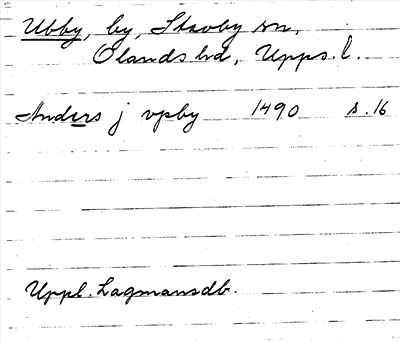 Ubby, by, Skavby sn,
Olands hd, Upps. l.
Anders j vpby 1490 s. 16
Uppl. Lagmansdb.